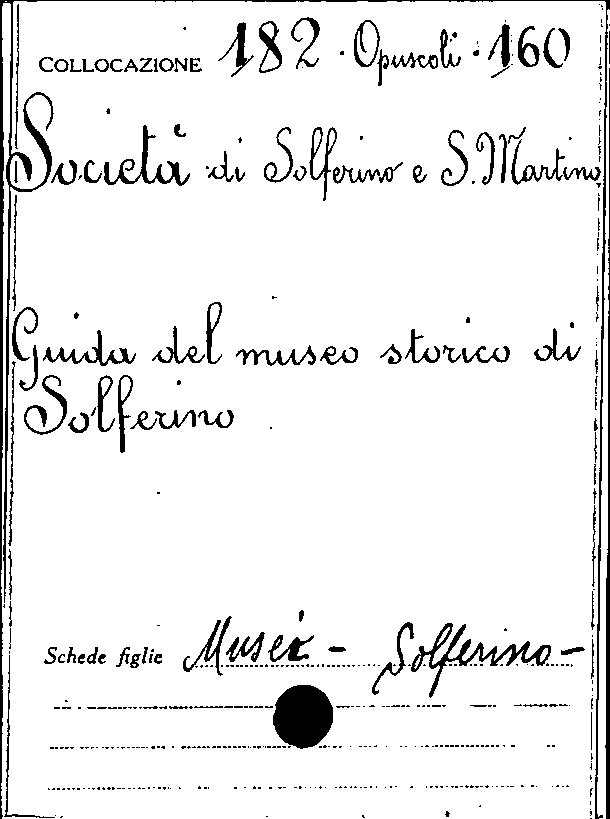 COLLOCAZIONE 182 · Opuscoli · 160
Società di Solferino e S. Martino
Guida del museo storico di
Solferino
Schede figlie Musei - Solferino -